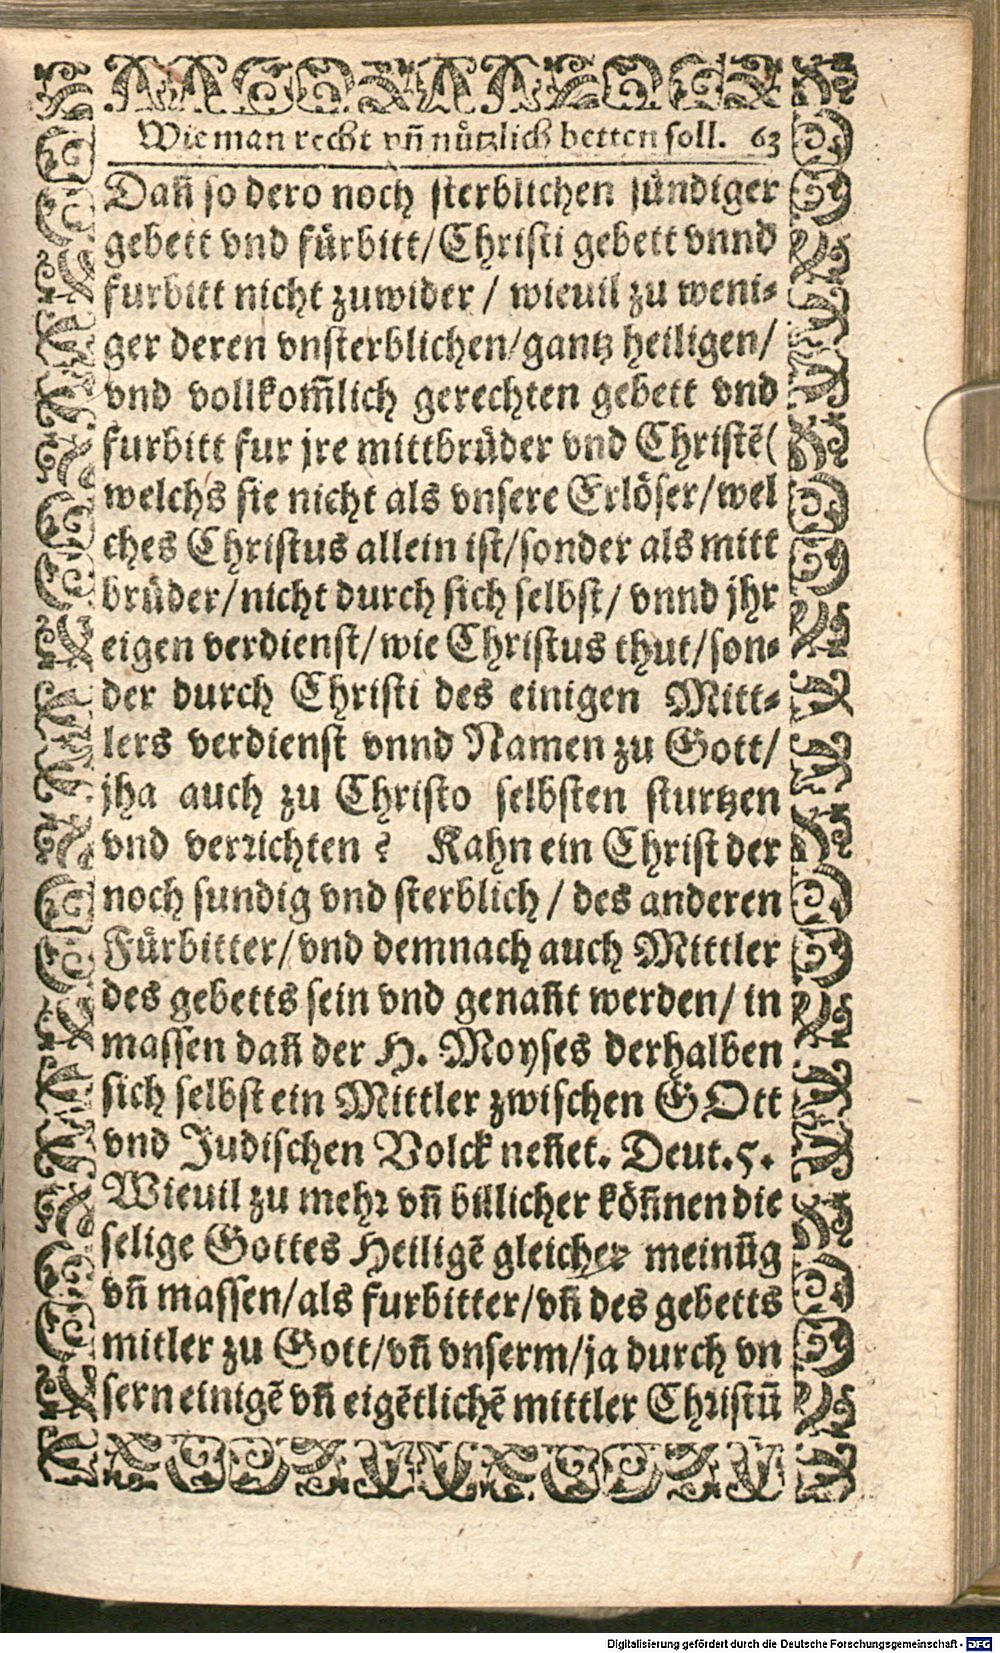 Wie man recht vñ nützlich betten soll. 63
Dañ so dero noch sterblichen sündiger
gebett vnd fürbitt/Christi gebett vnnd
furbitt nicht zuwider / wieuil zu weni-
ger deren vnsterblichen/gantz heiligen/
vnd vollkom̃lich gerechten gebett vnd
furbitt fur jre mittbrüder vnd Christẽ(
welchs sie nicht als vnsere Erlöser/wel
ches Christus allein ist/sonder als mitt
brüder/nicht durch sich selbst/ vnnd jhr
eigen verdienst/wie Christus thut/son-
der durch Christi des einigen Mitt-
lers verdienst vnnd Namen zu Gott/
jha auch zu Christo selbsten sturtzen
vnd verrichten? Kahn ein Christ der
noch sundig vnd sterblich / des anderen
Fürbitter/vnd demnach auch Mittler
des gebetts sein vnd genañt werden/ in
massen dañ der H. Moyses derhalben
sich selbst ein Mittler zwischen GOtt
vnd Judischen Volck neñet. Deut.5.
Wieuil zu mehr vñ billicher köñnen die
selige Gottes Heiligẽ gleicher meinũg
vñ massen/als furbitter/vñ des gebetts
mitler zu Gott/vñ vnserm/ja durch vn
sern einigẽ vñ eigẽtlichẽ mittler Christũ
Digitalisierung gefördert durch die Deutsche Forschungsgemeinschaft - DFG